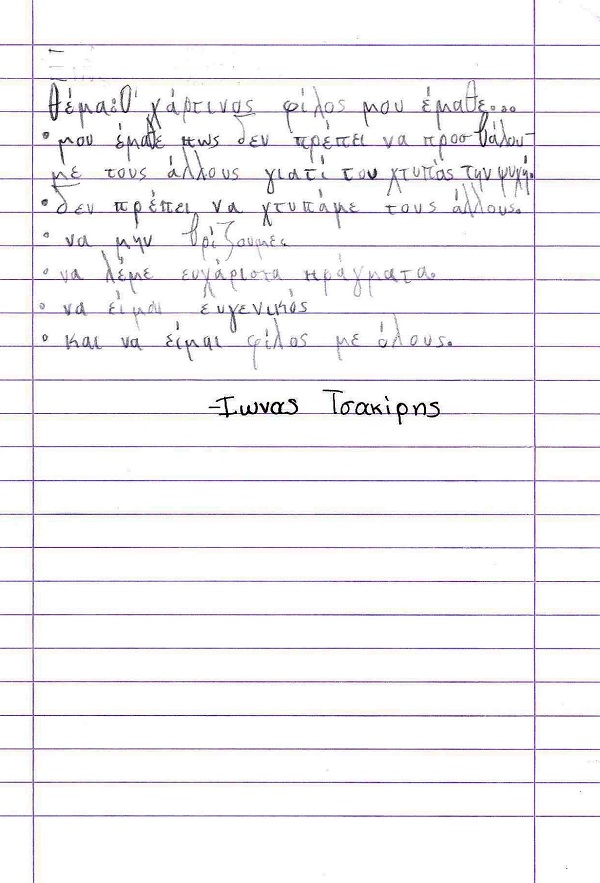 Θέμα: Ο χάρτινος φίλος μου έμαθε...
• μου έμαθε πως δεν πρέπει να προσβάλου-
με τους άλλους γιατί του χτυπάς την ψυχή.
• δεν πρέπει να χτυπάμε τους άλλους.
• να μην βρίζουμε
• να λέμε ευχάριστα πράγματα.
• να είμαι ευγενικός
• και να είμαι φίλος με όλους.
-Ιωνας Τσακίρης